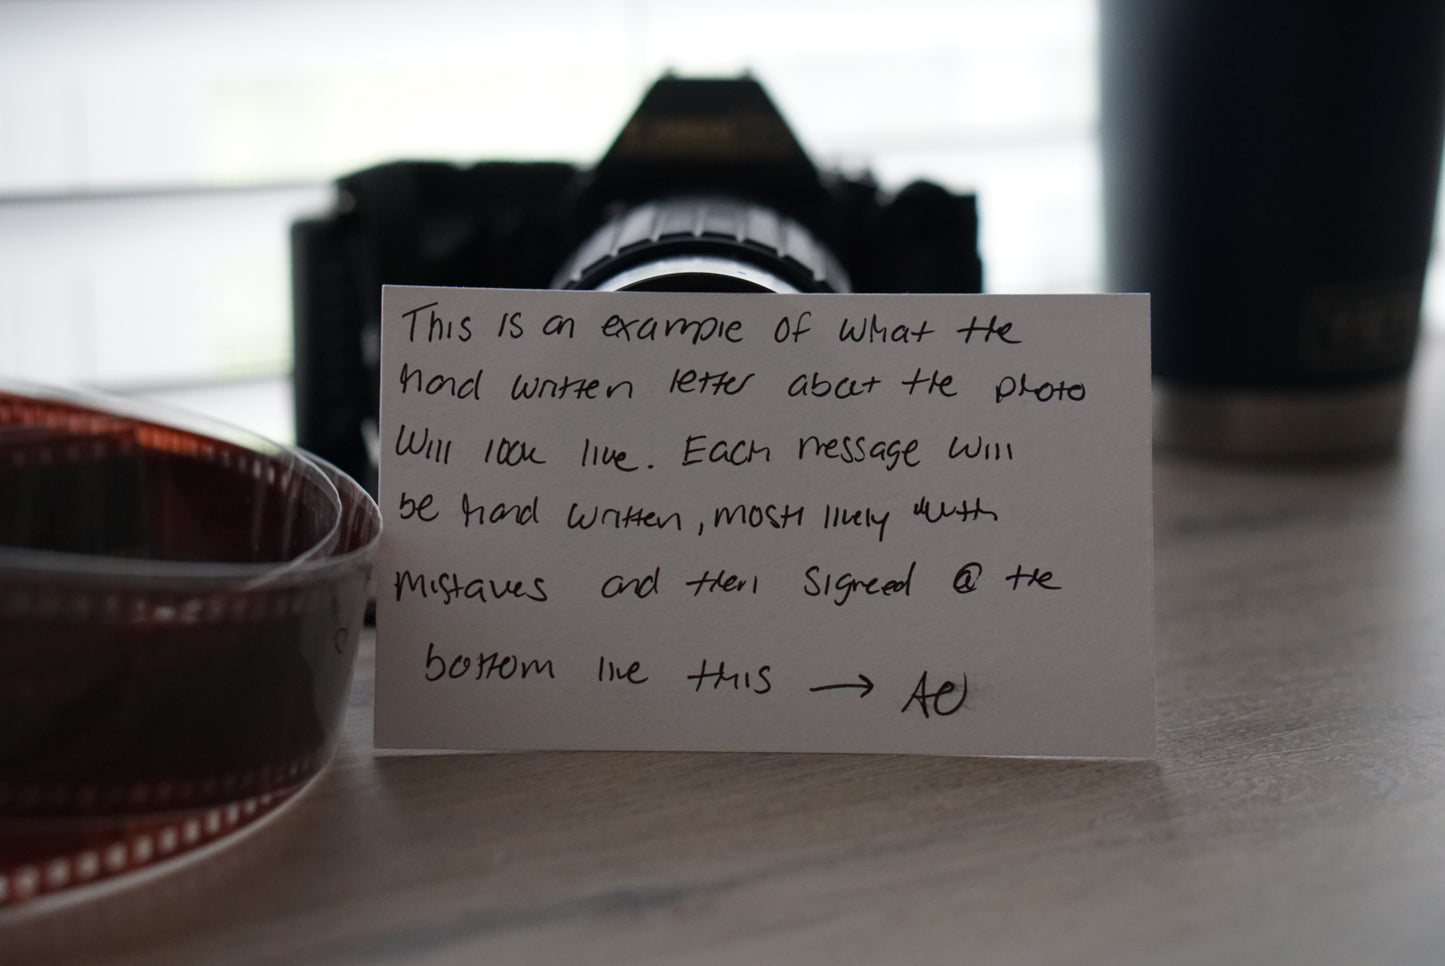 This is an example of what the
hand written letter about the photo
will look like. Each message will
be hand written, most likely with
mistakes and then signed @ the
bottom like this → AU